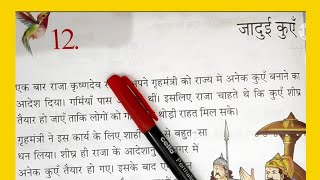 जादुई कुएँ
12.
एक बार राजा कृष्णदेव ने गृहमंत्री को राज्य में अनेक कुएँ बनाने का
आदेश दिया। गर्मियाँ पास थीं। इसलिए राजा चाहते थे कि कुएँ शीघ्र
तैयार हो जाएं ताकि लोगों को थोड़ी राहत मिल सके।
गृहमंत्री ने इस कार्य के लिए शाही से बहुत-सा
धन लिया। शीघ्र ही राजा के आदेशानु गर में
अनेक कुएँ तैयार हो गए। इसके बाद ए
cello